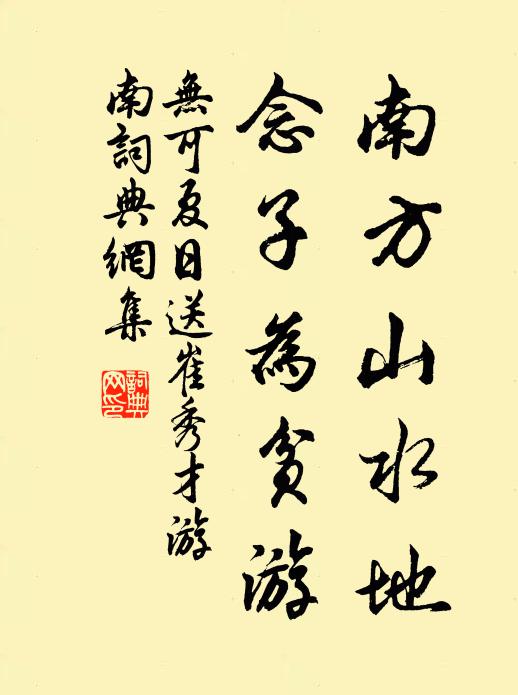 南方山水地
念子為貧游
無可夏日送崔秀才游
南詞典網集
詞典
网印